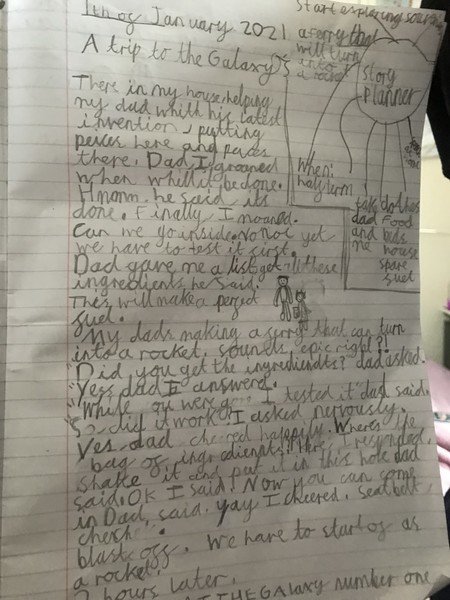 1th of January 2021
A trip to the Galaxy
There in my house, helping
my dad whith his latest
invention, putting
peices here and peices
there. Dad I groaned
when whill it be done.
Hmmm. he said its
done. Finally I moaned.
Can we go inside. No not yet
we have to test it first.
Dad gave me a list get all these
ingredients he said.
This will make a perfect
fuel.
My dads making a ferry that can turn
into a rocket, sounds epic right?!
"Did you get the ingrediundts?" dad asked.
"Yess dad I answerd.
"While you were gone I tested it" dad said.
So did it work? I asked nervously.
Yes dad cheered happily. Where's the
bag of ingredients? Here I responded.
shake it and put it in this hole dad
said. OK I said! Now you can come
in Dad, said. yay I cheered. Seatbelt,
check
blast off. We have to start of as
a rocket.
2 hours later.
AT THE GALAXY number one
Start
a ferry that
will turn
into a
a rocket
story
planner
when:
half term
dad
and
me
clothes
food
beds
house
spare
fuel